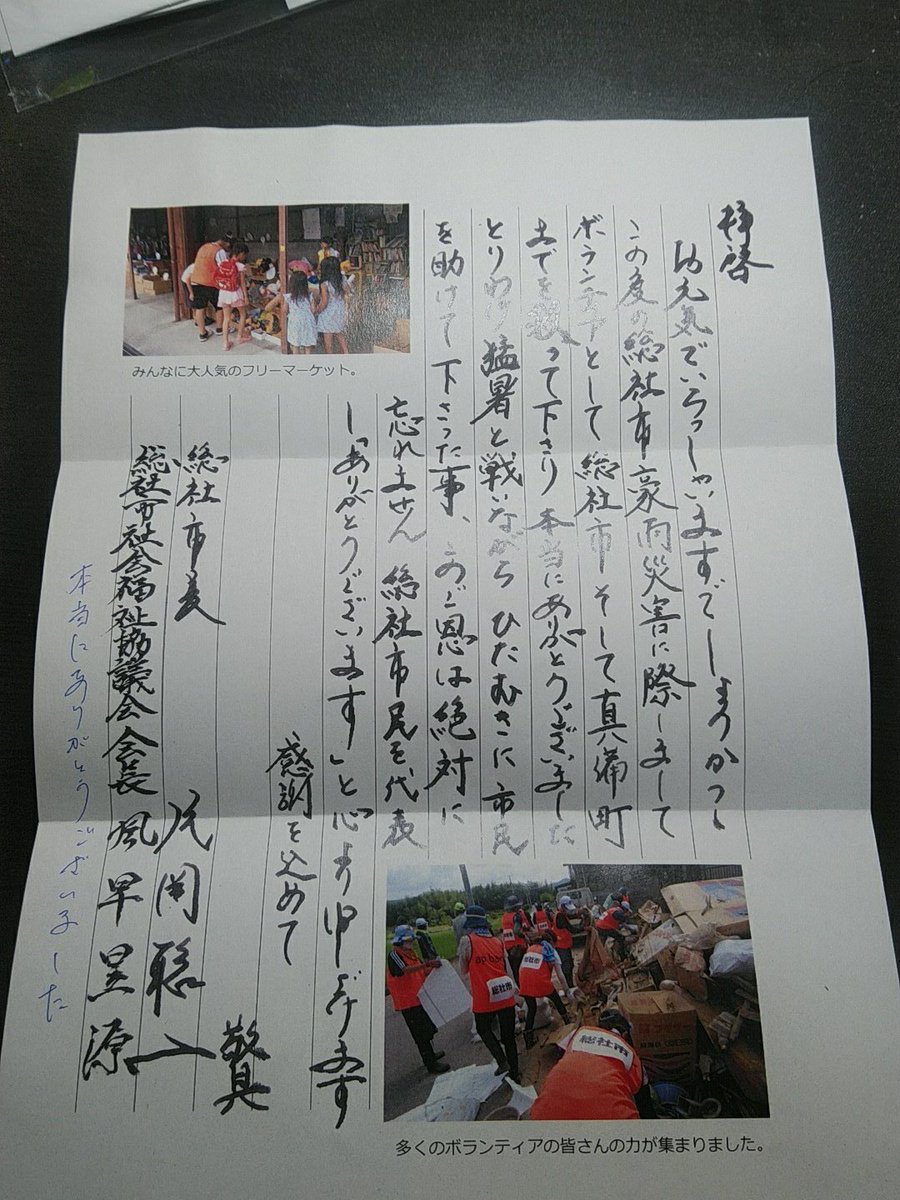 拝啓
お元気でいらっしゃいますでしょうか
この度の総社市豪雨災害に際しまして
ボランティアとして総社市そして真備町
までを救って下さり本当にありがとうございました
とりわけ猛暑と戦いながらひたむきに市民
を助けて下さった事、このご恩は絶対に
忘れません 総社市民を代表
し「ありがとうございます」と心より申し上げます
感謝を込めて
敬具
総社市長 片岡聡一
総社市社会福祉協議会会長 風早昱源
本当にありがとうございました
みんなに大人気のフリーマーケット。
総社市
総社市
総社市
多くのボランティアの皆さんの力が集まりました。